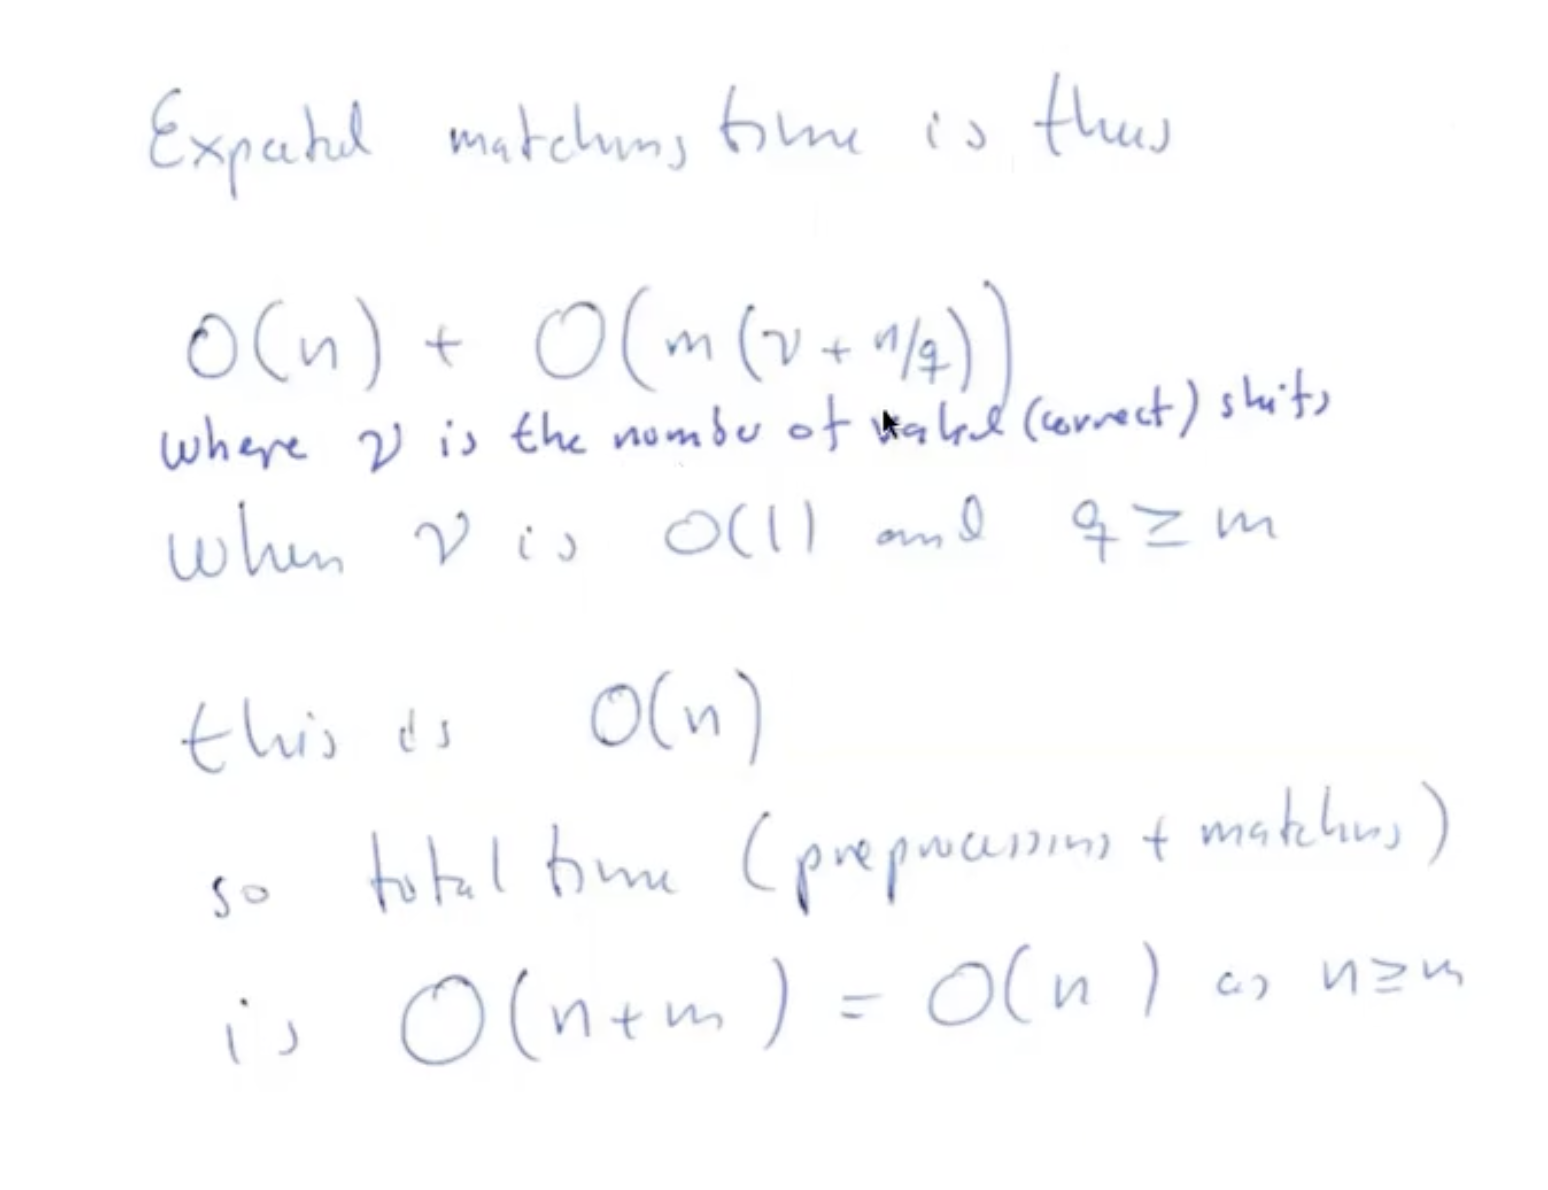 Expected matching time is thus
O(n) + O(m(ν + n/q))
where ν is the number of valid (correct) shifts
when ν is O(1) and q ≥ m
this is O(n)
so total time (preprocessing + matching)
is O(n+m) = O(n) as n≥m